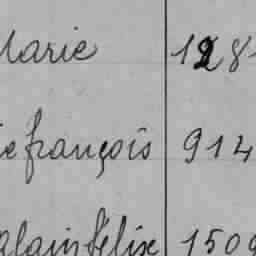 Marie 128
e françois 914
alain félix 150